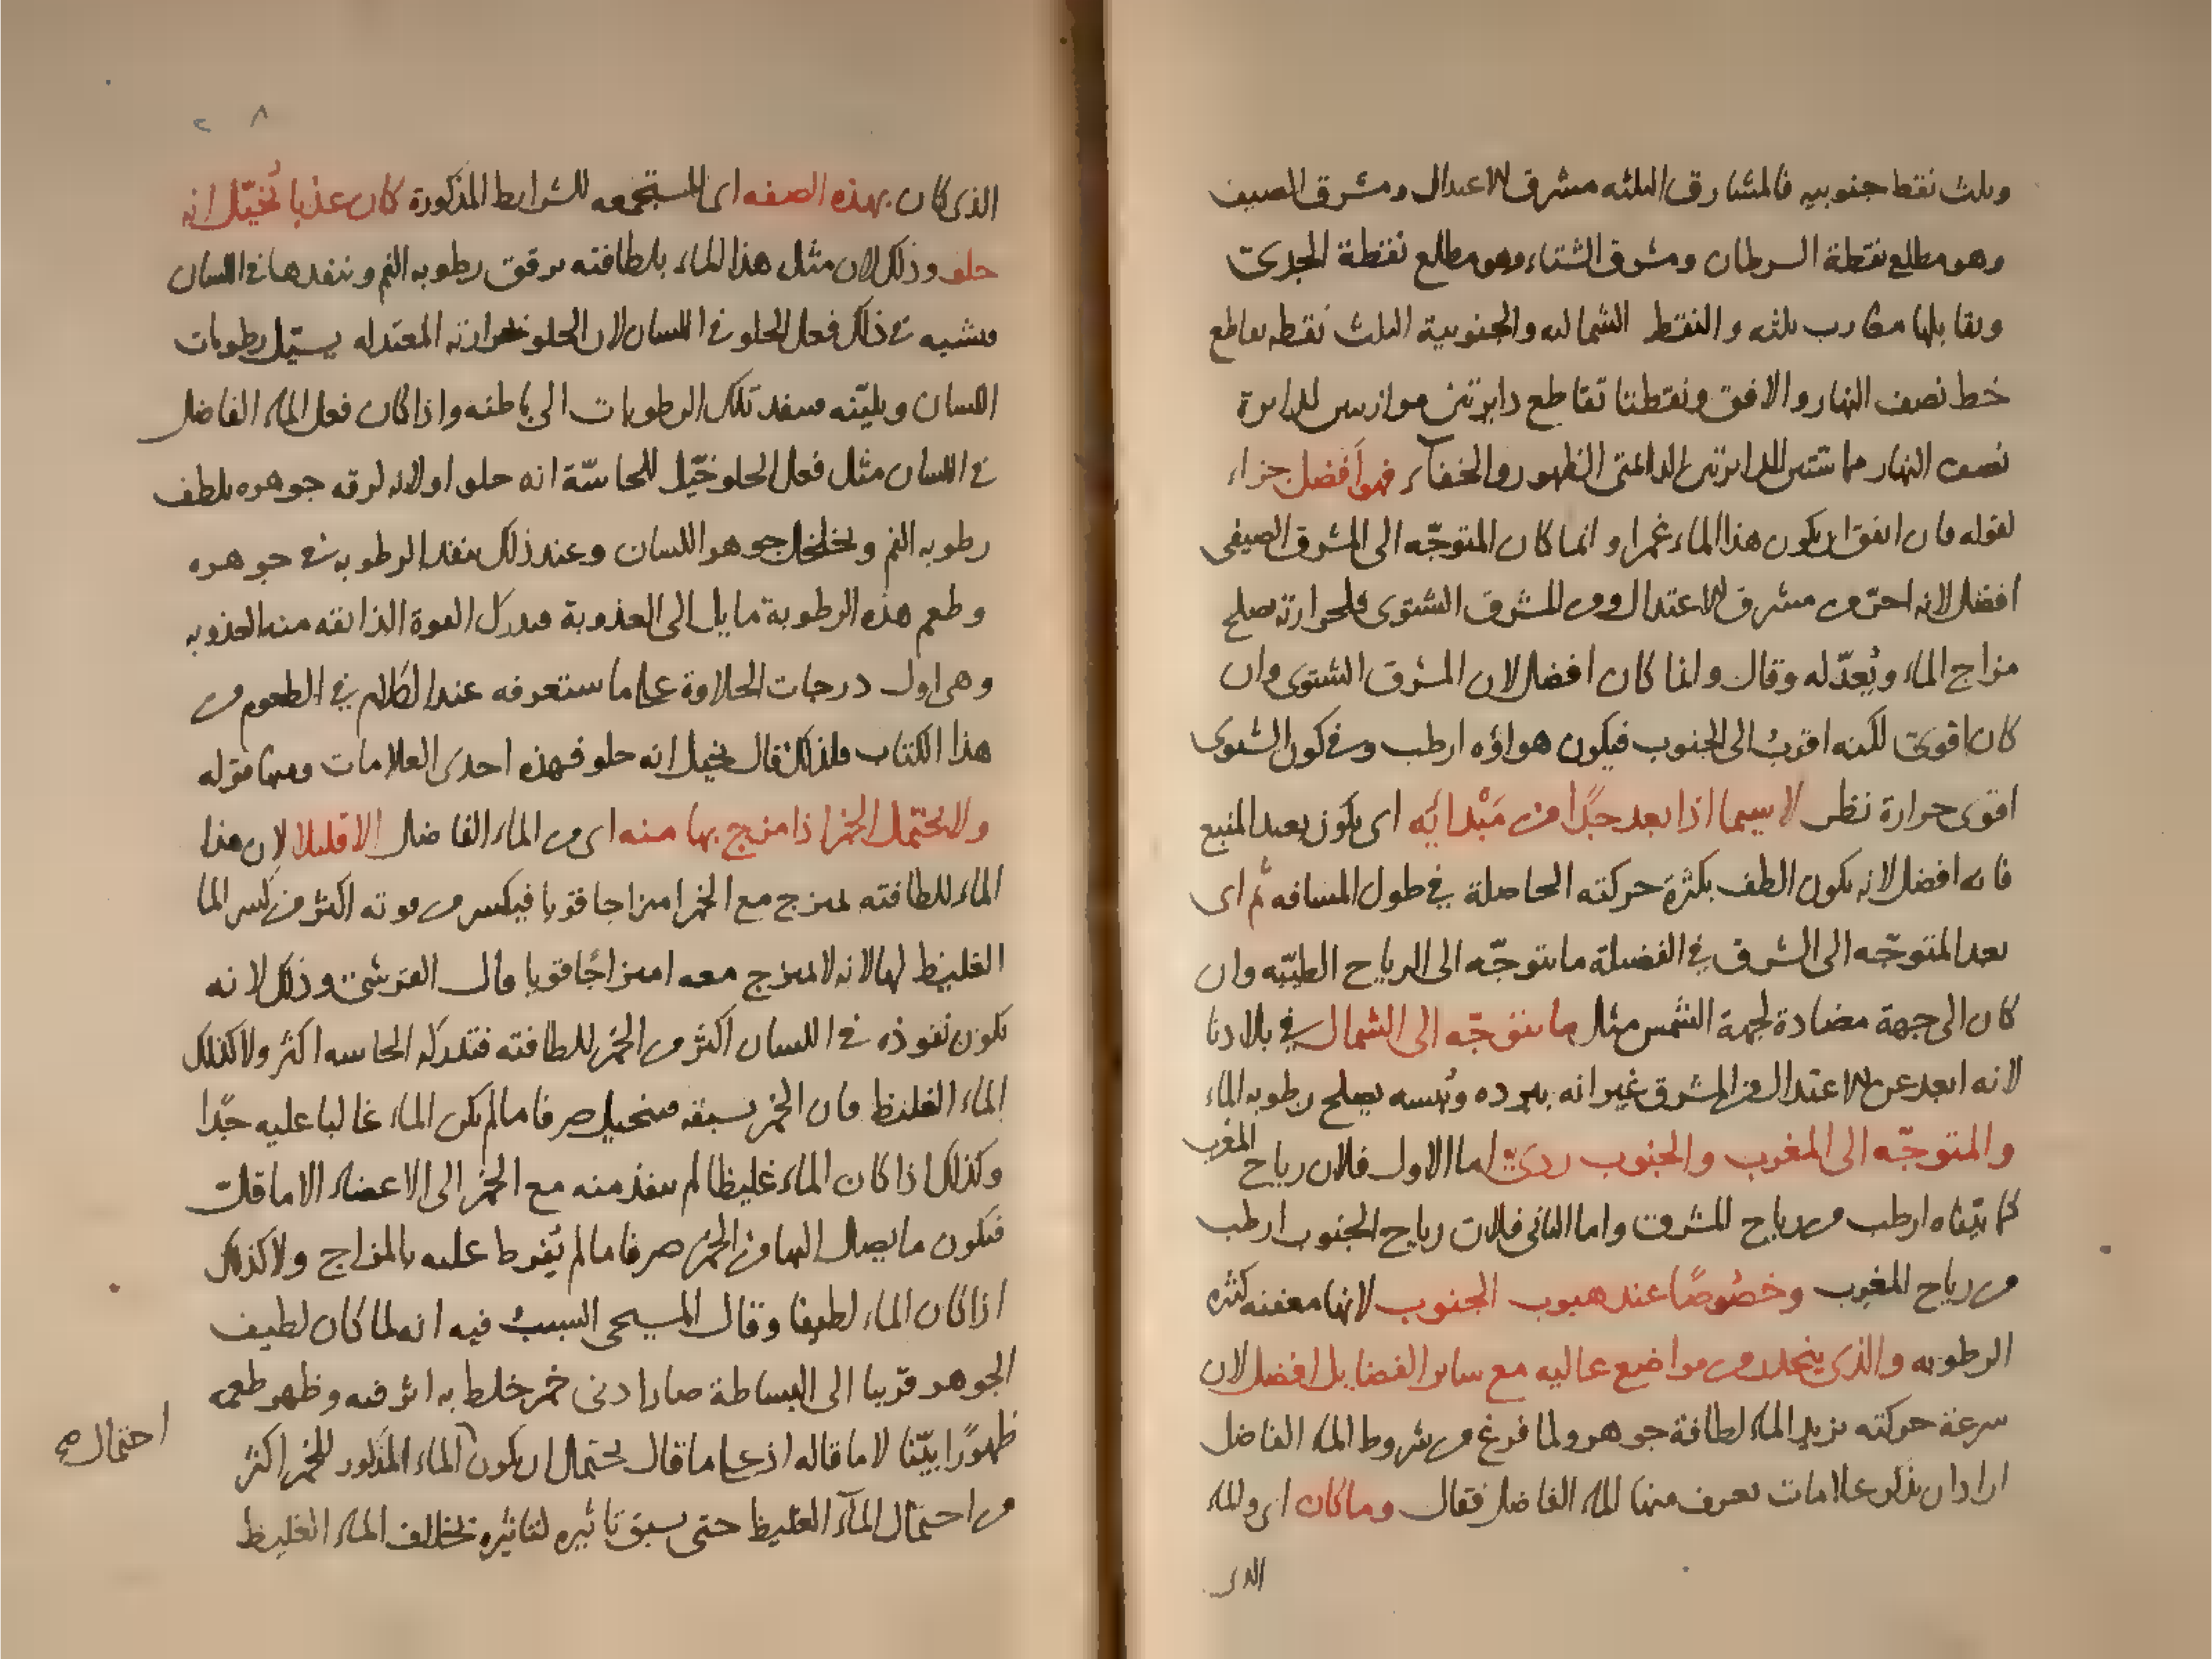 وثلث نقط جنوبيه فالمشارق الثلثه مشرق الاعتدال ومشرق الصيف
وهو مطلع نقطة السرطان ومشرق الشتاء وهو مطلع نقطة الجدى
ويقابلها مغارب ثلثه والنقط الشماليه والجنوبية الثلث نقطه تقاطع
خط نصف النهار والافق ونقطتا تقاطع دايرتين موازيتين لدايرة
نصف النهار مماستين للدايرتين الدائمتى الظهور والخفآء فهو أفضل جزاء
لقوله فان اتفق ان يكون هذا الماء غمرا وانما كان المتوجّه الى المشرق الصيفى
افضل لانه احرّ من مشرق الاعتدال ومن المشرق الشتوى فلحرارته يصلح
مزاج الماء ويُعدّله وقال وانما كان افضل لان المشرق الشتوى وان
كان اقوى لكنه اقربُ الى الجنوب فيكون هواؤه ارطب وفى كون الشتوى
اقوى حرارة نظر لا سيما اذا بعد جدًّا من مَبْدائه اى يكون بعيد المنبع
فانه افضل لانه يكون الطف بكثرة حركته الحاصلة فى طول المسافه ثم اى
بعد المتوجّه الى الشرق فى الفضيلة ما يتوجّه الى الرياح الطيبّه وان
كان الى جهة مضادة لجهة الشمس مثل ما يتوجّه الى الشمال فى بلادنا
لانه ابعد عن الاعتدال من المشرق غير انه ببرده ويُبسه يصلح رطوبه الماء
والمتوجّه الى المغرب والجنوب ردىّ اما الاول فلان رياح المغرب
كما بيّناه ارطب من رياح المشرق واما الثانى فلان رياح الجنوب ارطب
من رياح المغرب وخصُوصًا عند هبوب الجنوب لانها معفنه كثره
الرطوبه والذى ينحدر من مواضع عاليه مع ساير الفضايل افضل لان
سرعة حركته يزيد الماء لطافة جوهر ولما فرغ من شروط الماء الفاضل
اراد ان يذكر علامات يعرف منها الماء الفاضل فقال وما كان اى والماء
الذى
٢٨
الذى كان بهذه الصفه اى المستجمعه للشرايط المذكورة كان عذبا يُخيّل انه
حلو وذلك لان مثل هذا الماء بلطافته يرقق رطوبه الفم وينفدها فى اللسان
فيشبه فى ذلك فعل الحلو فى اللسان لان الحلو بحرارته المعتدله يسيّل رطوبات
اللسان ويليّنه فينفد تلك الرطوبات الى باطنه واذا كان فعل الماء الفاضل
فى اللسان مثل فعل الحلو خيّل للحاسّة انه حلو او لانه لرقه جوهره يلطف
رطوبه الفم ويخلخل جوهر اللسان وعند ذلك تنفد الرطوبه فى جوهره
وطعم هذه الرطوبة مايل الى العذوبة فيدرك القوة الذائقه منه العذوبه
وهى اول درجات الحلاوة على ما ستعرفه عند الكلام فى الطعوم من
هذا الكتاب فلذلك قال يخيل انه حلو فهذه احدى العلامات ومنها قوله
ولا يحتمل الخمر اذا مزج بها منه اى من الماء الفاضل الا قليلا لان هذا
الماء للطافته يمتزج مع الخمر امتزاجا قويا فيكسر من قوته اكثر من كسر الما
الغليظ لها لانه لا يمتزج معه امتزاجًا قويا قال القرشى وذلك لانه
يكون نفوذه فى اللسان اكثر من الخمر للطافته فتدركه الحاسه اكثر ولا كذلك
الماء الغليظ فان الخمر يسبقه فيتخيل صرفا ما لم يكن الماء غالبا عليه جدّا
وكذلك اذا كان الماء غليظا لم ينفذ منه مع الخمر الى الاعضاء الا ما قلت
فيكون ما يصل اليها من الخمر صرفا ما لم يُفرط عليه بالمزاج ولا كذلك
اذا كان الماء لطيفا وقال المسيحى السببُ فيه انه لما كان لطيف
الجوهر قريبا الى البساطة صار ادنى خمر خلط به اثر فيه وظهر طعمه
ظهورًا بيّنا لا ما قاله اذ على ما قال يحتمل ان يكون الماء المذكور للخمر اكثر
احتمال صح
من احتمال المآء الغليظ حتى يسبق تاثيره لتاثيره بخلاف الماء الغليظ